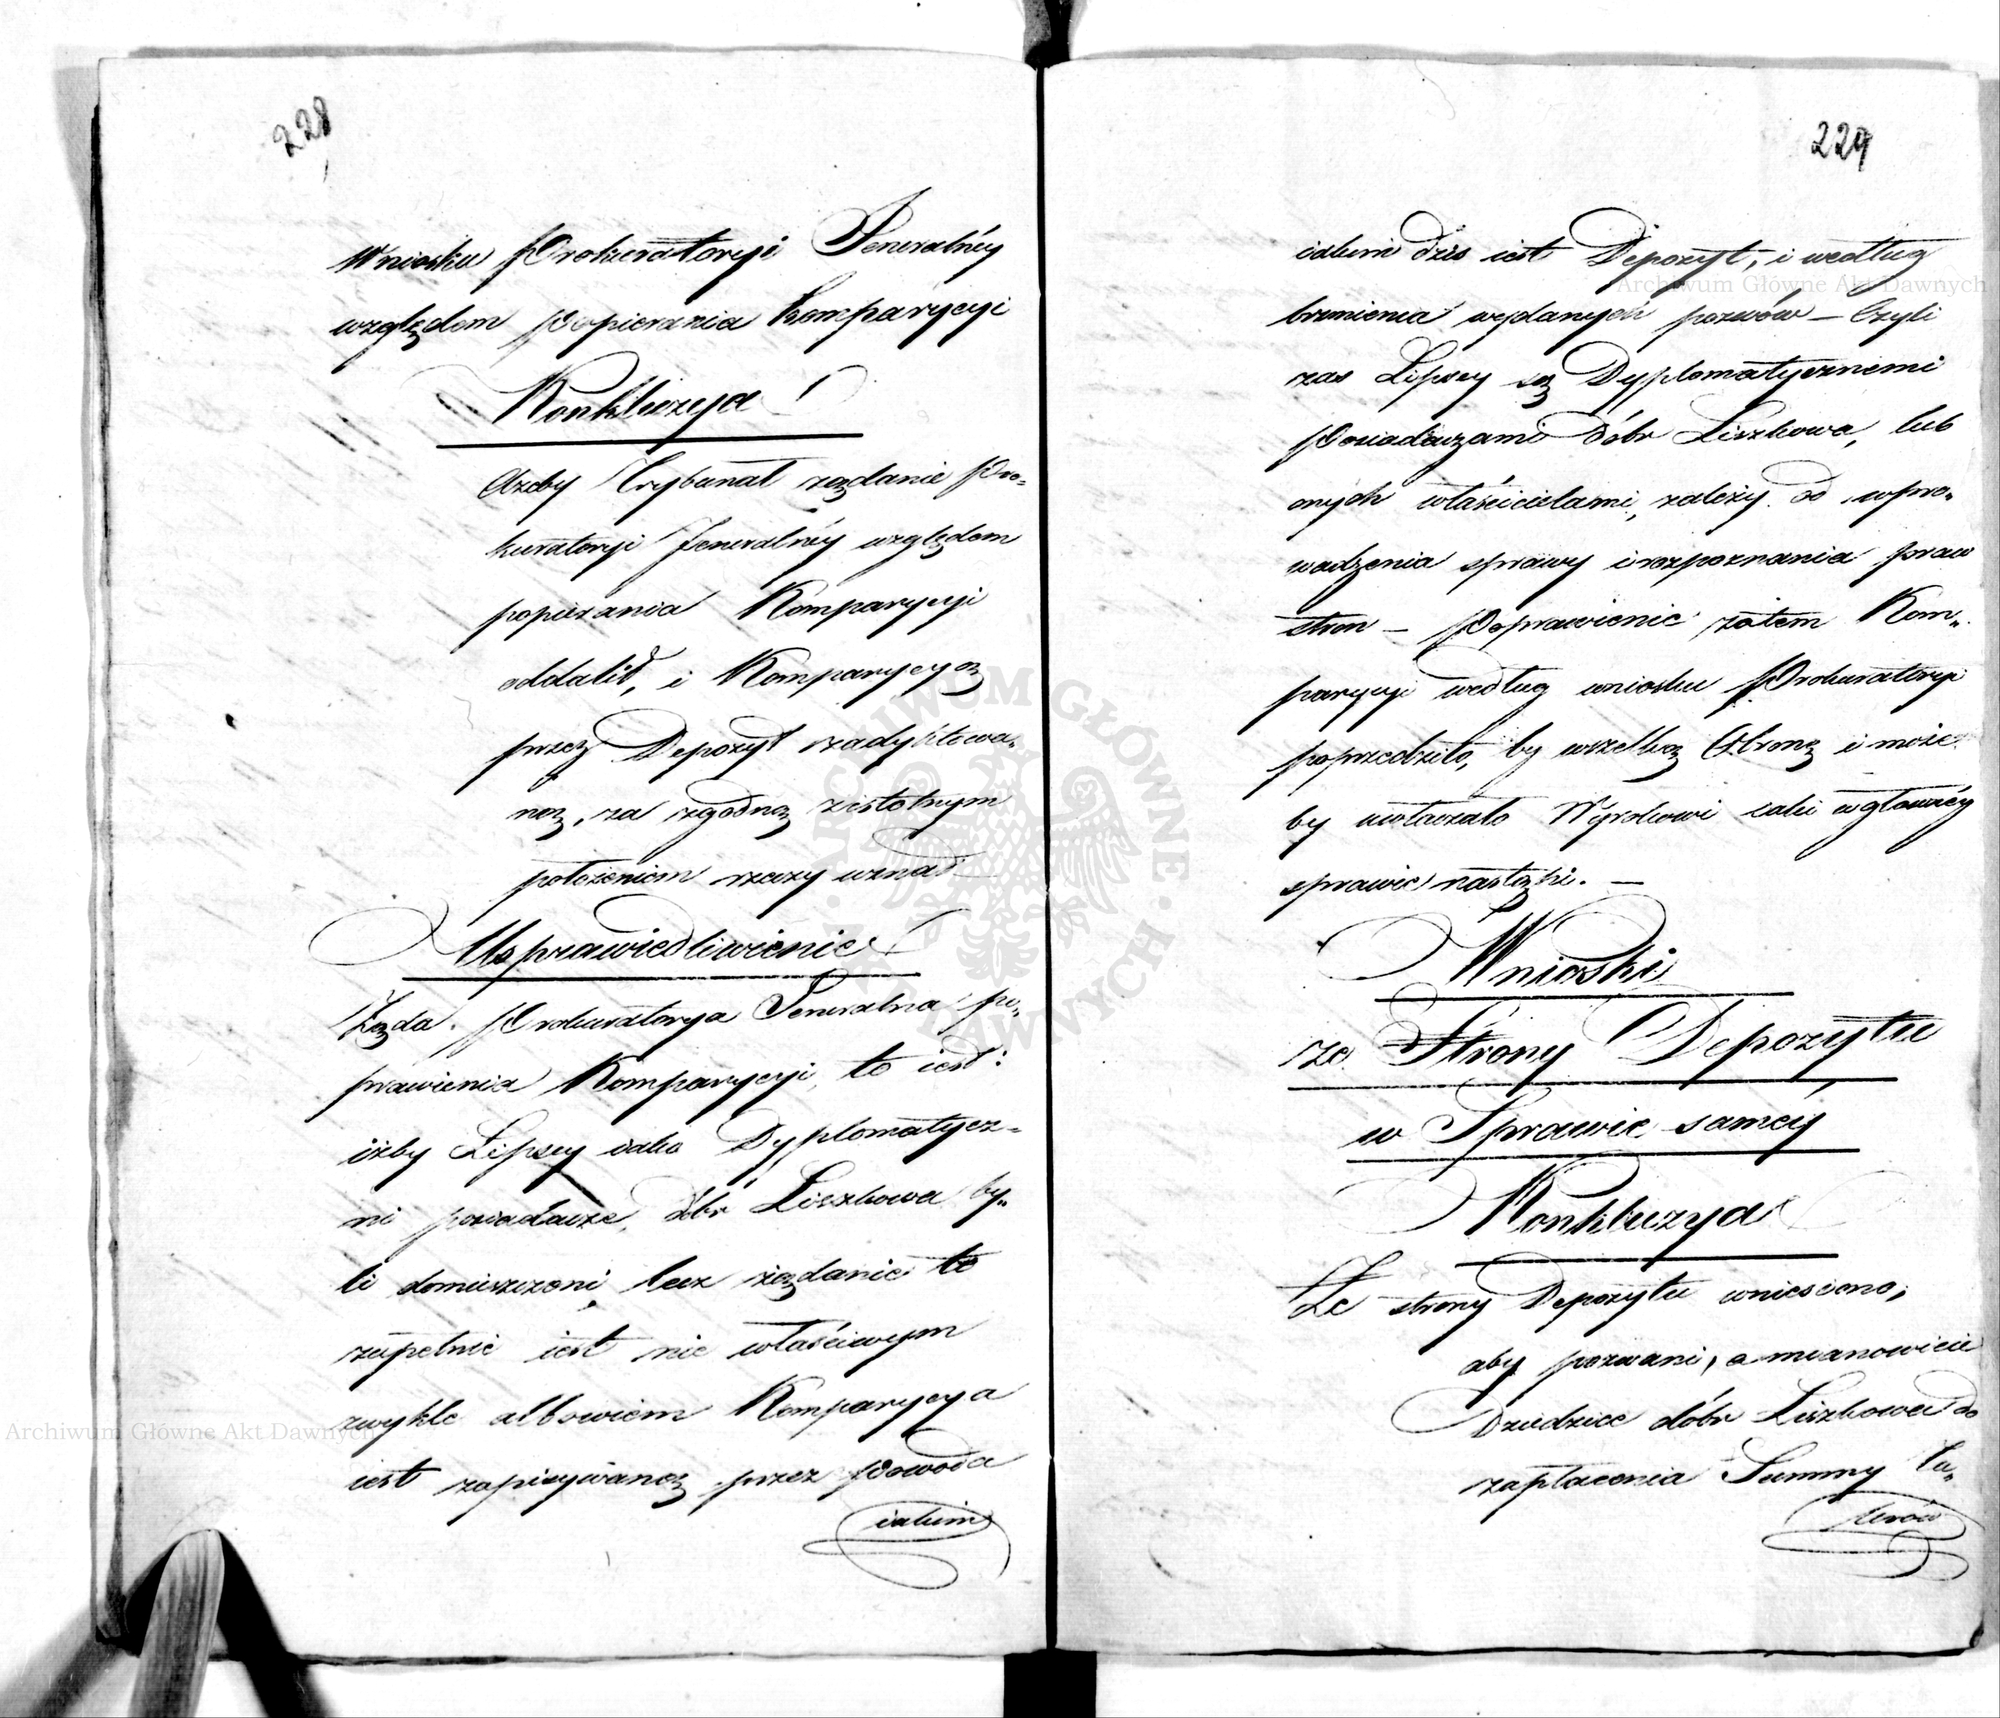 228
Wniosku Prokuratoryi Jeneralnéy
względem Popierania Komparycyi
Konkluzya
Ażeby Trybunał żądanie Pro-
kuratoryi Jeneralnéy względem
popierania Komparycyi
oddalił, i Komparycyą
przez Depozyt zadyktowa-
ną, za zgodną z istotnym
położeniem rzeczy uznał
Usprawiedliwienie
Żąda Prokuratorya Jeneralna po-
prawienia Komparycyi, to iest:
iżby Lipscy iako Dyplomatycz-
ni posiadacze dóbr Liszkowa by-
li domieszczeni, lecz żądanie to
zupełnie iest nie właściwym
zwykle albowiem Komparycya
iest zapisywaną przez Powoda
iakim
229
iakim dziś iest Depozyt, i według
brzmienia wydanych pozwów – Czyli
zaś Lipscy są Dyplomatycznemi
Posiadaczami Dóbr Liszkowa, lub
onych właścicielami, zależy od wpro-
wadzenia sprawy i rozpoznania praw
stron – Poprawienie zatem Kom-
parycyi według wniosku Prokuratoryi
poprzedziło, by wszelką Obronę i może
by uwłaczało Wyrokowi iaki w głównéy
sprawie nastąpi. —
Wnioski
ze Strony Depozytu
w Sprawie saméy
Konkluzya
Ze strony Depozytu wniesiono,
aby pozwani, a mianowicie
Dziedzice dóbr Liszkowa do
zapłacenia Summy ta-
larów
Archiwum Główne Akt Dawnych
Archiwum Główne Akt Dawnych
ARCHIWUM GŁÓWNE AKT DAWNYCH